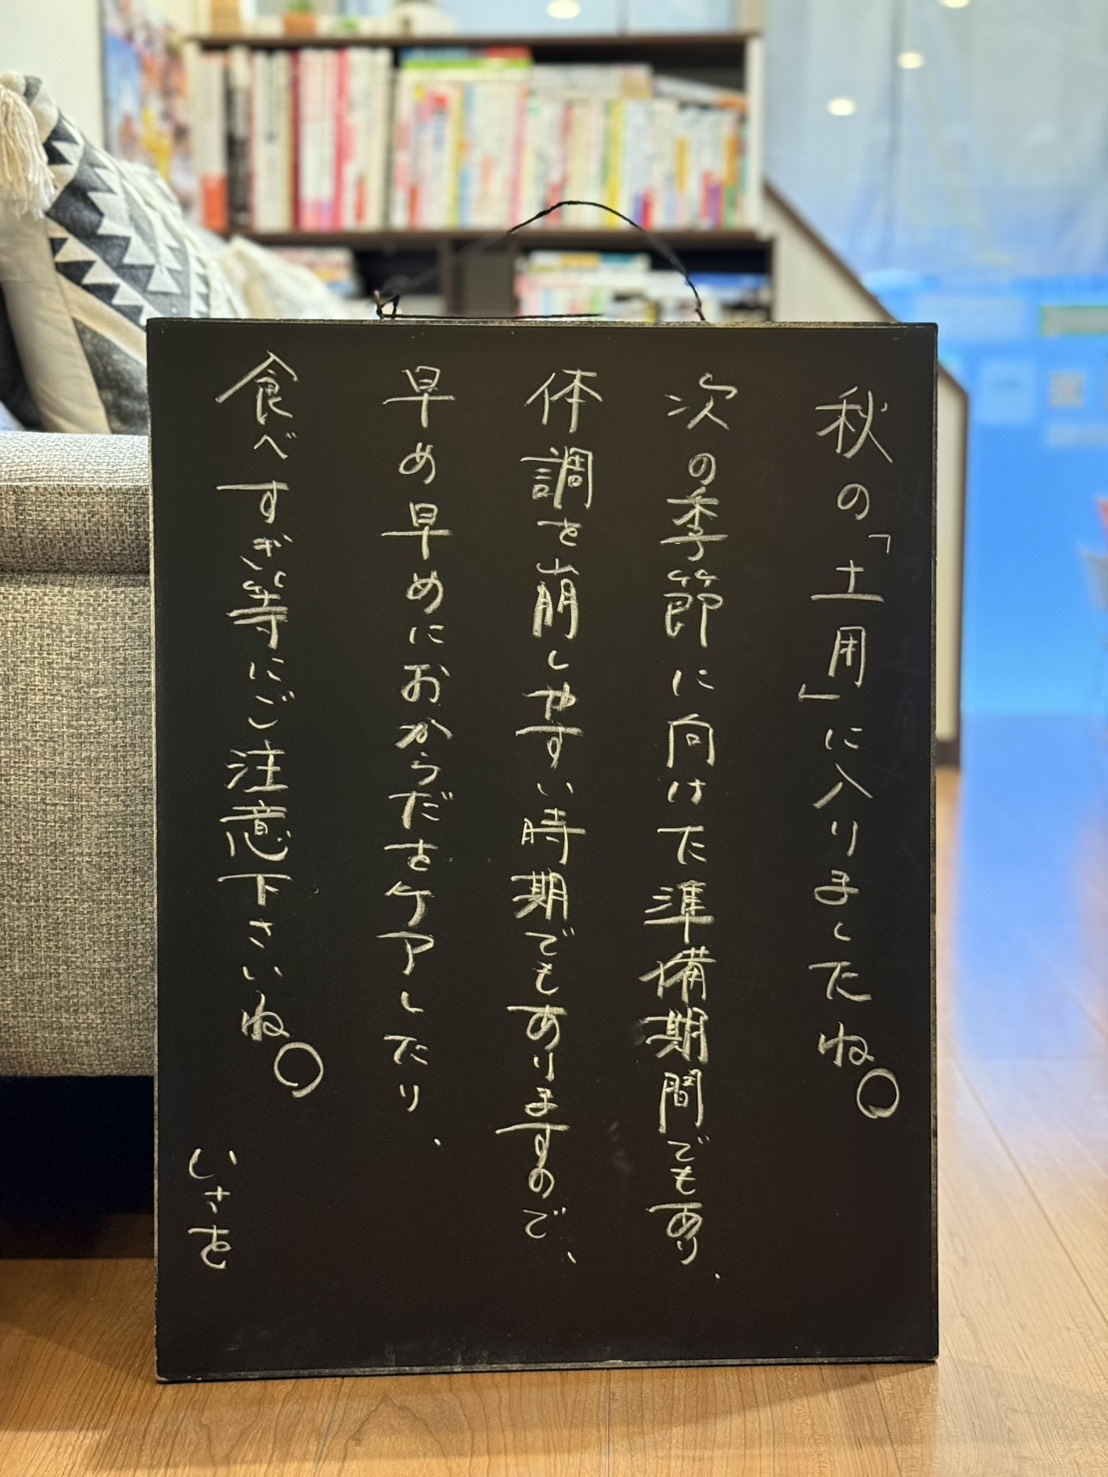 秋の「土用」に入りましたね。
次の季節に向けた準備期間でもあり、
体調を崩しやすい時期でもありますので、
早め早めにおからだをケアしたり、
食べすぎ等にご注意下さいね。
いさを